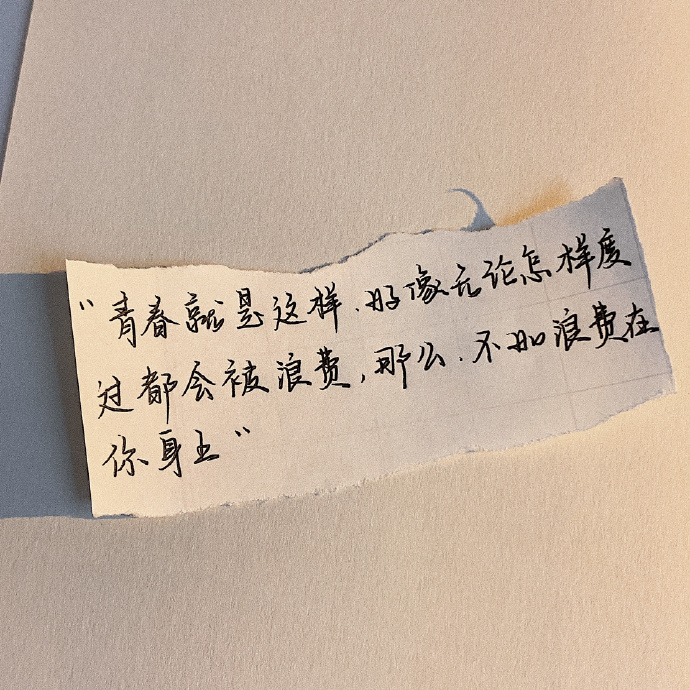 “青春就是这样.好像无论怎样度
过都会被浪费,那么.不如浪费在
你身上”